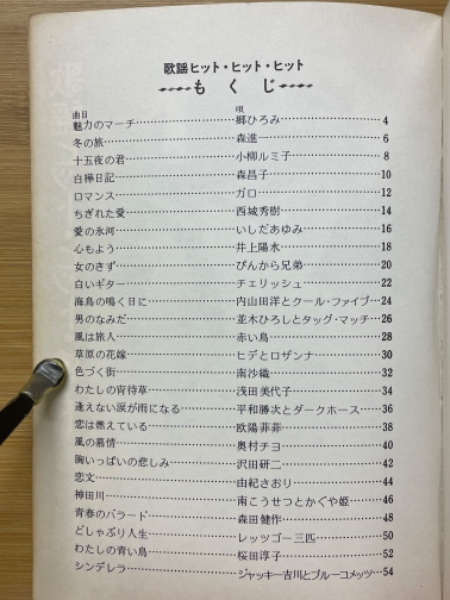 歌謡ヒット・ヒット・ヒット
もくじ
曲目 唄
魅力のマーチ 郷ひろみ 4
冬の旅 森進一 6
十五夜の君 小柳ルミ子 8
白樺日記 森昌子 10
ロマンス ガロ 12
ちぎれた愛 西城秀樹 14
愛の氷河 いしだあゆみ 16
心もよう 井上陽水 18
女のきず ぴんから兄弟 20
白いギター チェリッシュ 22
海鳥の鳴く日に 内山田洋とクール・ファイブ 24
男のなみだ 並木ひろしとタッグ・マッチ 26
風は旅人 赤い鳥 28
草原の花嫁 ヒデとロザンナ 30
色づく街 南沙織 32
わたしの宵待草 浅田美代子 34
逢えない涙が雨になる 平和勝次とダークホース 36
恋は燃えている 欧陽菲菲 38
風の慕情 奥村チヨ 40
胸いっぱいの悲しみ 沢田研二 42
恋文 由紀さおり 44
神田川 南こうせつとかぐや姫 46
青春のバラード 森田健作 48
どしゃぶり人生 レッツゴー三匹 50
わたしの青い鳥 桜田淳子 52
シンデレラ ジャッキー吉川とブルーコメッツ 54